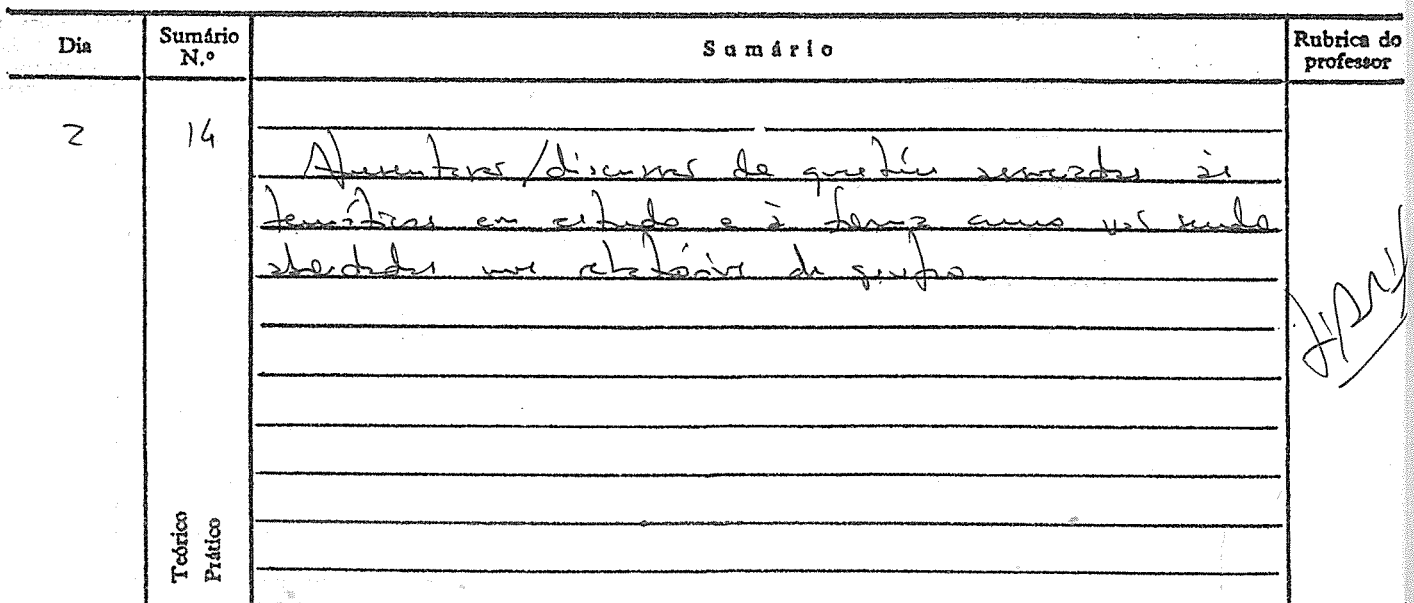 Dia Sumário N.º Sumário Rubrica do professor
2 14
Apresentação/discussão de questões associadas às
temáticas em estudo e à forma como vão sendo
abordadas nos relatórios de grupo.
Teórico
Prático